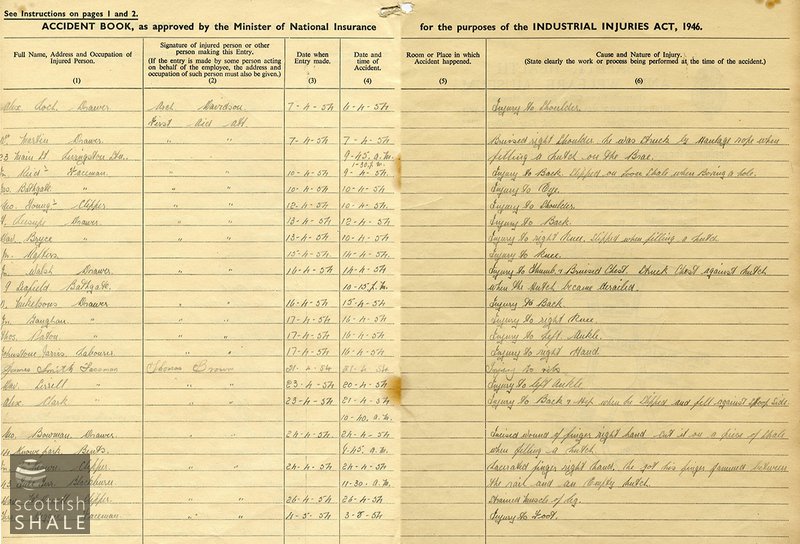 See Instructions on pages 1 and 2.
ACCIDENT BOOK, as approved by the Minister of National Insurance for the purposes of the INDUSTRIAL INJURIES ACT, 1946.
Full Name, Address and Occupation of Injured Person. (1)
Signature of injured person or other person making this Entry. (If the entry is made by some person acting on behalf of the employee, the address and occupation of such person must also be given.) (2)
Date when Entry made. (3)
Date and time of Accident. (4)
Room or Place in which Accident happened. (5)
Cause and Nature of Injury. (State clearly the work or process being performed at the time of the accident.) (6)
Alex Loch Drawer Davidson 7-4-54 6-4-54 Injury to Shoulder.
First Aid Att.
Wm Martin Drawer " " 7-4-54 7-4-54 Bruised right Shoulder he was struck by Haulage rope when
23 Main St. Livingston Stn. 9-45 a.m. filling a hutch on the Brae.
1-30 p.m.
Reid Faceman " " 10-4-54 9-4-54 Injury to Back Slipped on loose Shale when Boring a hole.
Jos. Bathgate " " " 10-4-54 10-4-54 Injury to Eye.
Geo. Young Clipper " " 12-4-54 10-4-54 Injury to Shoulder
Drawer " " 13-4-54 12-4-54 Injury to Back.
Dav. Bryce " " " 13-4-54 10-4-54 Injury to right Knee. Slipped when filling a hutch
" " 15-4-54 14-4-54 Injury to Knee.
Jn. Walsh Drawer " " 14-4-54 14-4-54 Injury to Thumb & Bruised Chest. Struck Chest against hutch
Bathgate 10-15 p.m. when the hutch became derailed.
Drawer " " 16-4-54 15-4-54 Injury to Back
Jn. " " " 17-4-54 16-4-54 Injury to right Knee
Thos. Paton " " " 17-4-54 16-4-54 Injury to Left Ankle.
Johnstone Labourer " " 17-4-54 16-4-54 Injury to right Hand
James Smith Faceman Thomas Brown 21-4-54 21-4-54 Injury to
Dav. " " 23-4-54 20-4-54 Injury to left Ankle
Alex Clark " " " 23-4-54 21-4-54 Injury to Back & Hip when he Slipped and fell against Side
10-40 a.m.
Geo. Bowman Drawer " " 24-4-54 24-4-54 Incised wound of finger right hand cut it on a piece of Shale
Park Bents 9.45 a.m. when filling a hutch
Brown Clipper " " 24-4-54 24-4-54 Lacerated finger right hand, he got his finger jammed between
Blackburn 11-30 a.m. the rail and an Empty hutch.
Clipper " " 26-4-54 26-4-54 Strained muscle of leg.
Faceman " " 4-5-54 3-5-54 Injury to Foot.
scottish
SHALE